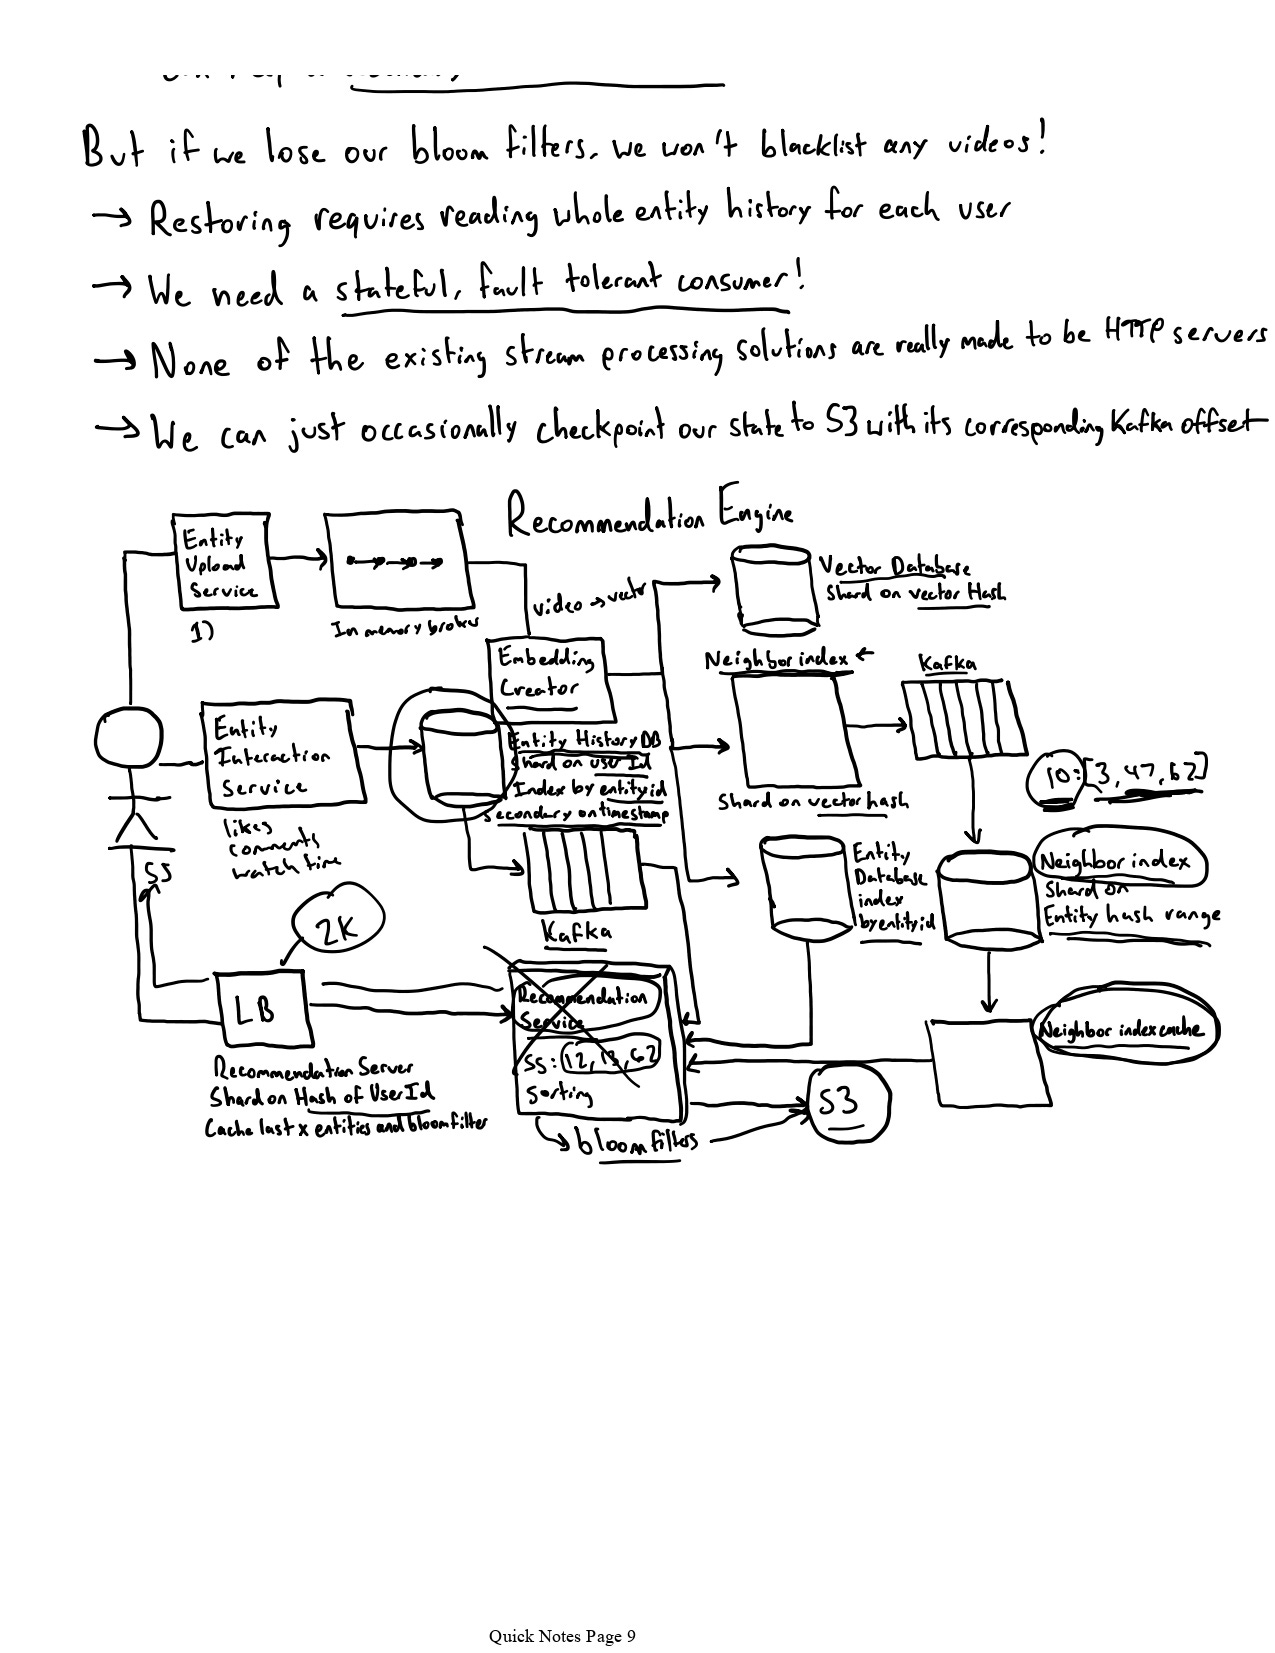 But if we lose our bloom filters, we won't blacklist any videos!
→ Restoring requires reading whole entity history for each user
→ We need a stateful, fault tolerant consumer!
→ None of the existing stream processing solutions are really made to be HTTP servers
→ We can just occasionally checkpoint our state to S3 with its corresponding Kafka offset
Recommendation Engine
Entity
Upload
Service
1)
In memory broker
video → vector
Vector Database
Shard on vector Hash
Embedding
Creator
Neighbor index ←
Kafka
Shard on vector hash
10: [3, 47, 62]
Entity
Interaction
Service
likes
comments
watch time
Entity History DB
Shard on user Id
Index by entity id
Secondary on timestamp
Kafka
Entity
Database
index
by entity id
Neighbor index
Shard on
Entity hash range
55
2K
LB
Recommendation
Service
55: [12, 13, 62]
Sorting
Neighbor index cache
Recommendation Server
Shard on Hash of User Id
Cache last x entities and bloom filter
bloom filters
S3
Quick Notes Page 9